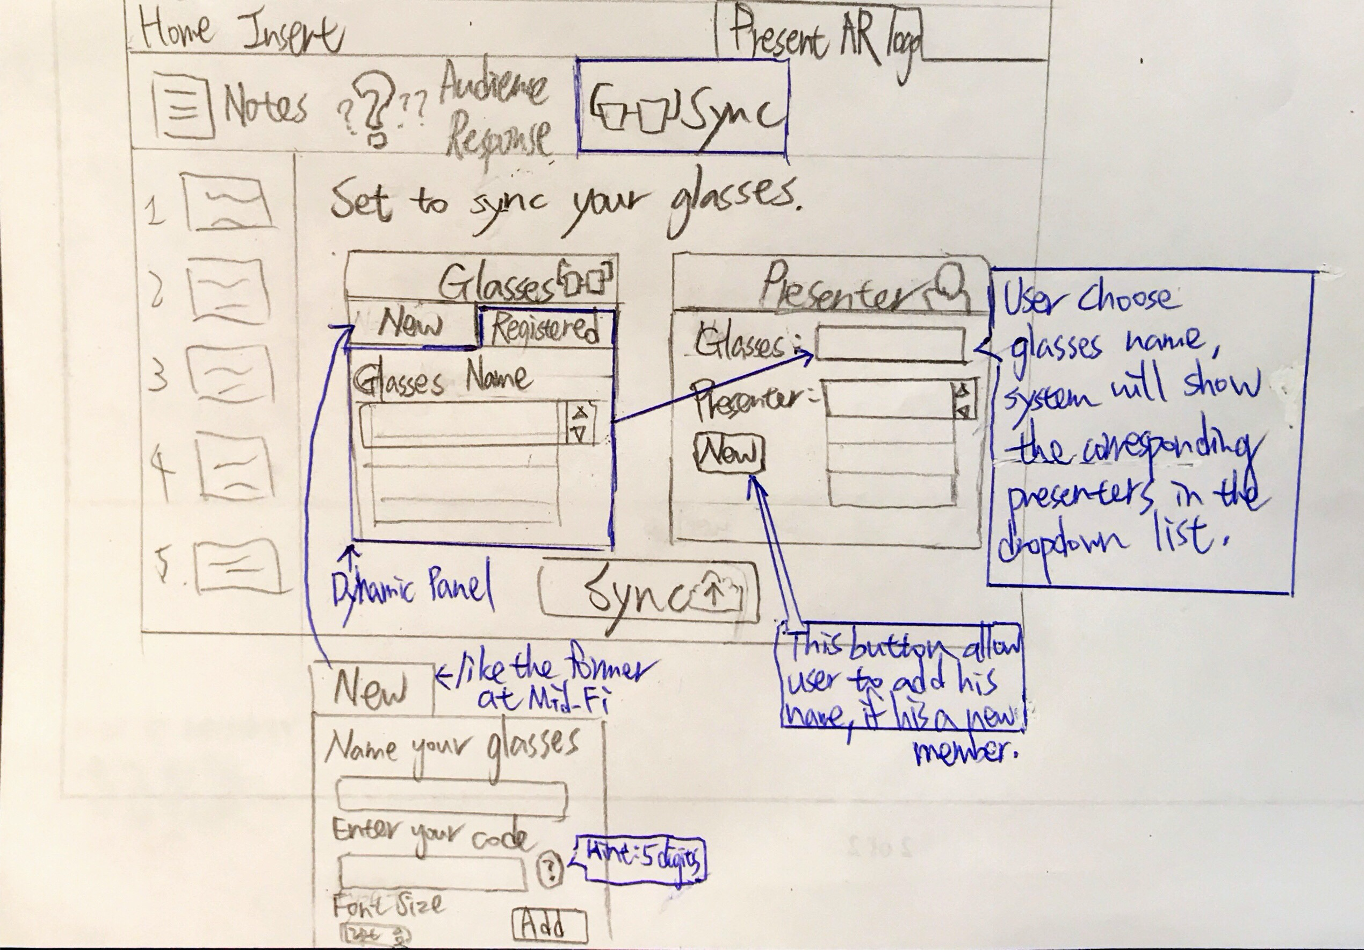 Home Insert
Present AR logo
Notes
? ? ??
Audience
Response
Sync
Set to sync your glasses.
1
2
3
4
5.
Glasses
New
Registered
Glasses Name
Presenter
Glasses:
Presenter:
New
User choose
glasses name,
system will show
the corresponding
presenters in the
dropdown list.
Dynamic Panel
Sync
This button allow
user to add his
name, if his a new
member.
New
←like the former
at Mid-Fi
Name your glasses
Enter your code
?
Hint: 5 digits
Font Size
Add